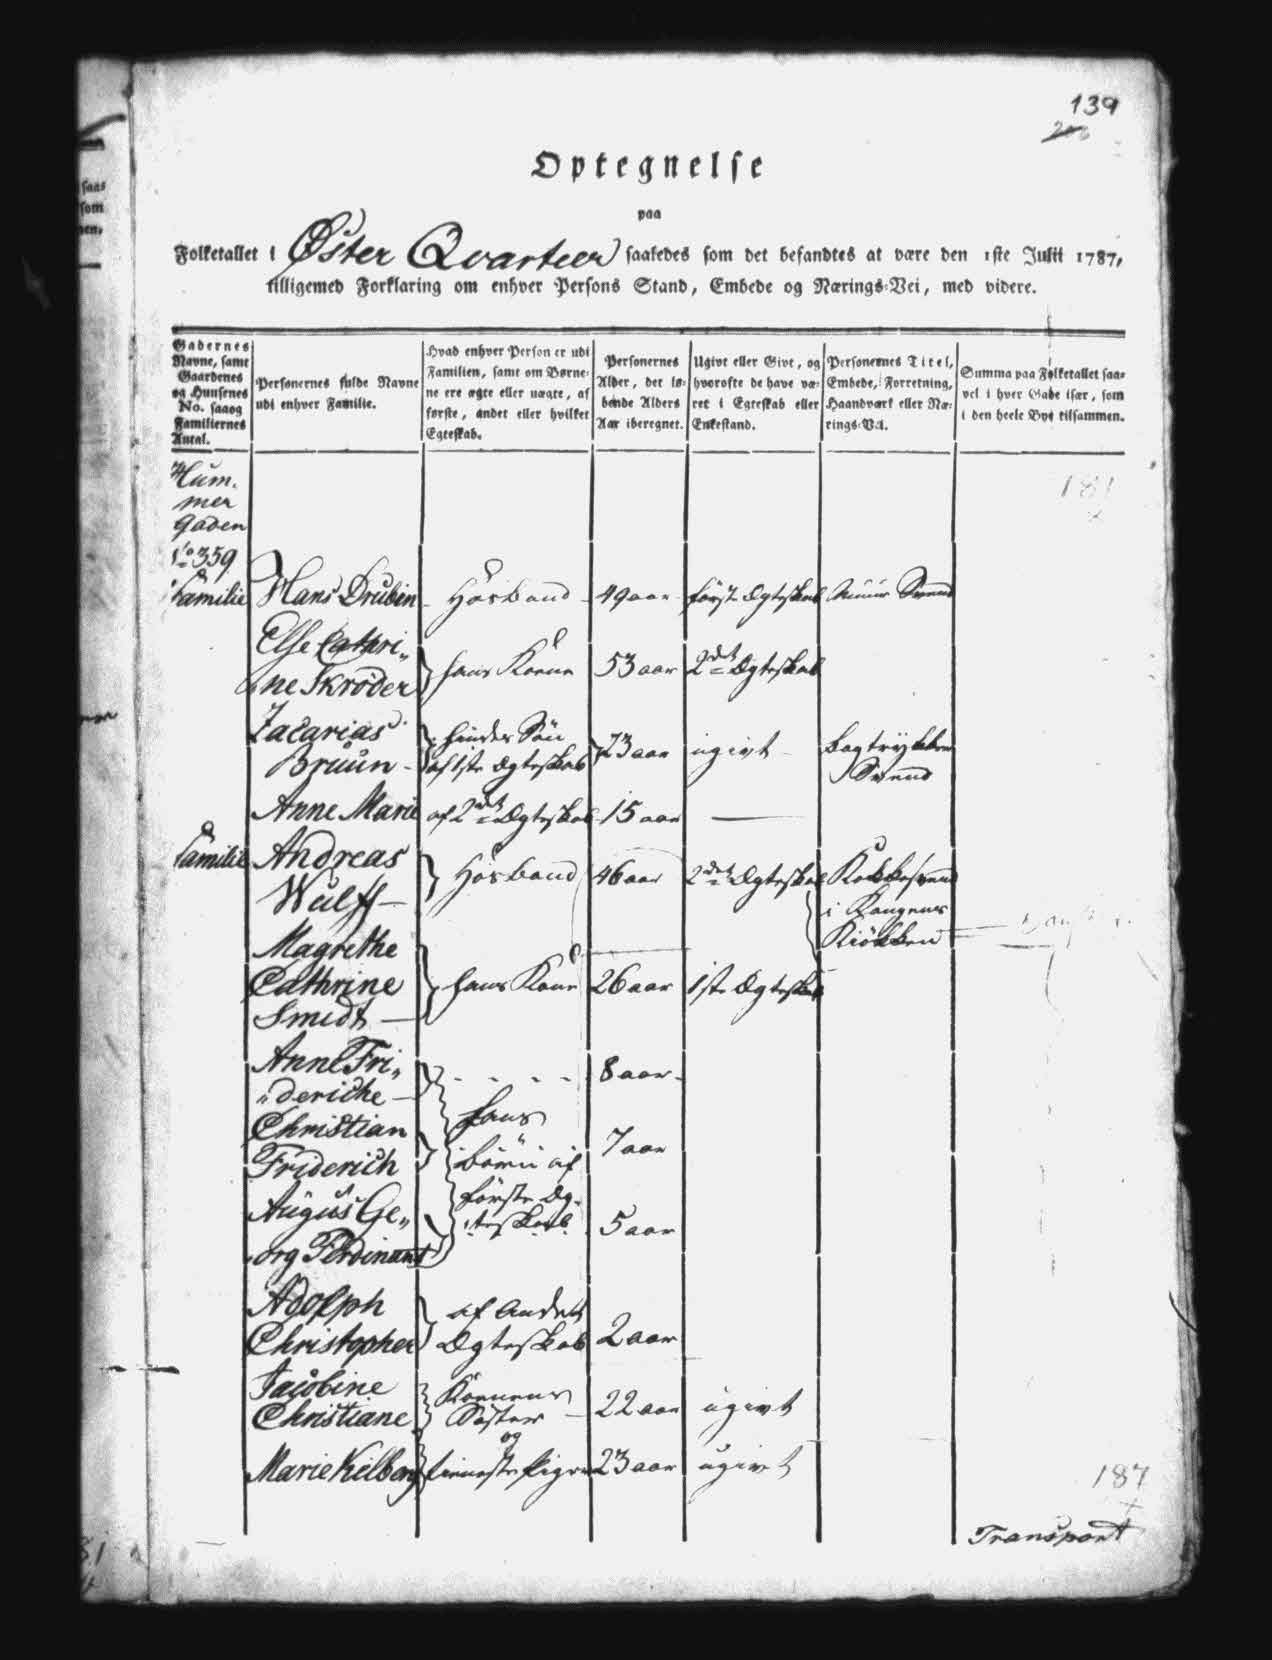 139
Optegnelse
paa
Folketallet i Øster Qvarteer saaledes som det befandtes at være den 1ste Julii 1787,
tilligemed Forklaring om enhver Persons Stand, Embede og Nærings-Vei, med videre.
Gadernes
Navne, samt
Gaardenes
og Huusenes
No. saaog
Familiernes
Antal.
Personernes fulde Navne
udi enhver Familie.
Hvad enhver Person er udi
Familien, samt om Børne-
ne ere ægte eller uægte, af
første, andet eller hvilket
Egteskab.
Personernes
Alder, det lø-
bende Alders
Aar iberegnet.
Ugivt eller Givt, og
hvorofte de have væ-
ret i Egteskab eller
Enkestand.
Personernes Titel,
Embede, Forretning,
Haandværk eller Næ-
rings-Vei.
Summa paa Folketallet saa-
vel i hver Gade især, som
i den heele Bye tilsammen.
Hum-
mer
gaden
181
No 359
Familie Hans Drubin Hosbond 49 aar første Egteskab Muur Svend
Else Cathri„
ne Skrøder hans Kone 53 aar 2det Egteskab
Zacarias hindes Søn
Bruun af 1ste Egteskab 23 aar ugivt
Svend
Anne Marie af 2det Egteskab 15 aar
Familie Andreas
Wulff Hosbond 46 aar 2det Egteskab Kokkesvend
i Kongens
Kiøkken
Magrethe
Cathrine hans Kone 26 aar 1ste Egteskab
Smidt
Anne Fri„
„deriche 8 aar
Christian hans
Friderich Børn af 7 aar
Augus Ge„ første Eg-
org Ferdinant teskab 5 aar
Adolph af Andet
Christopher Egteskab 2 aar
Jacobine Konens
Christiane Søster 22 aar ugivt
og
Marie Kielberg tieneste pige 23 aar ugivt
187
Transport